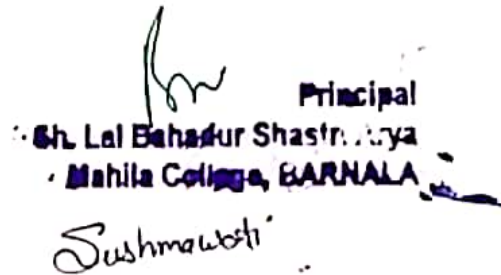 Principal
Sh. Lal Bahadur Shastri
Mahila College, BARNALA
Sushmawati